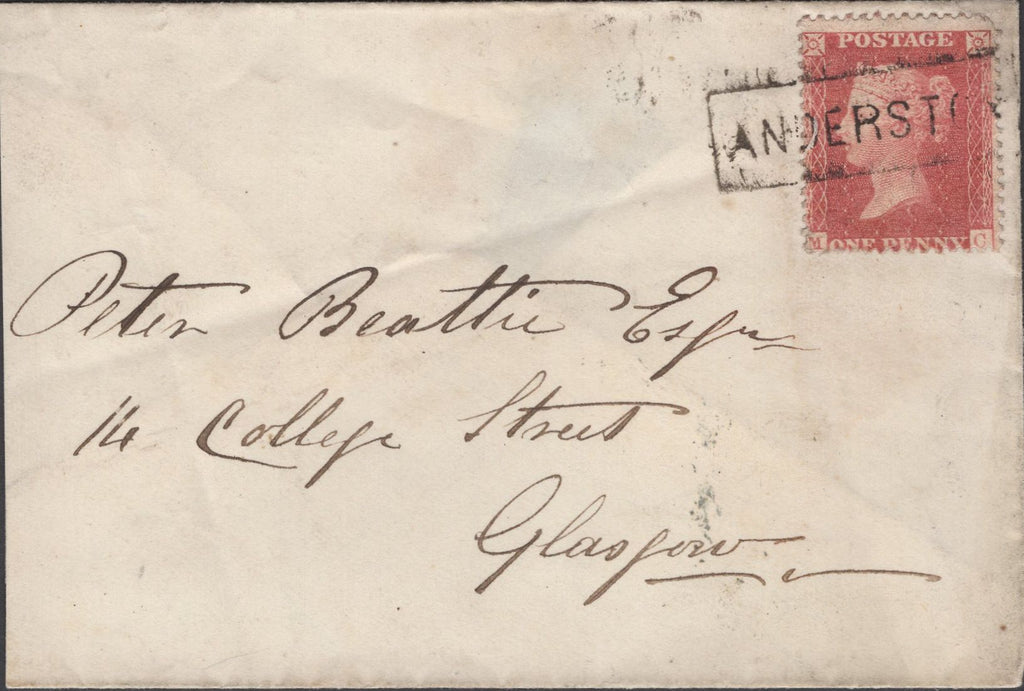 POSTAGE
ANDERST
M ONE PENNY C
Peter Beattie Esqr
14 College Street
Glasgow